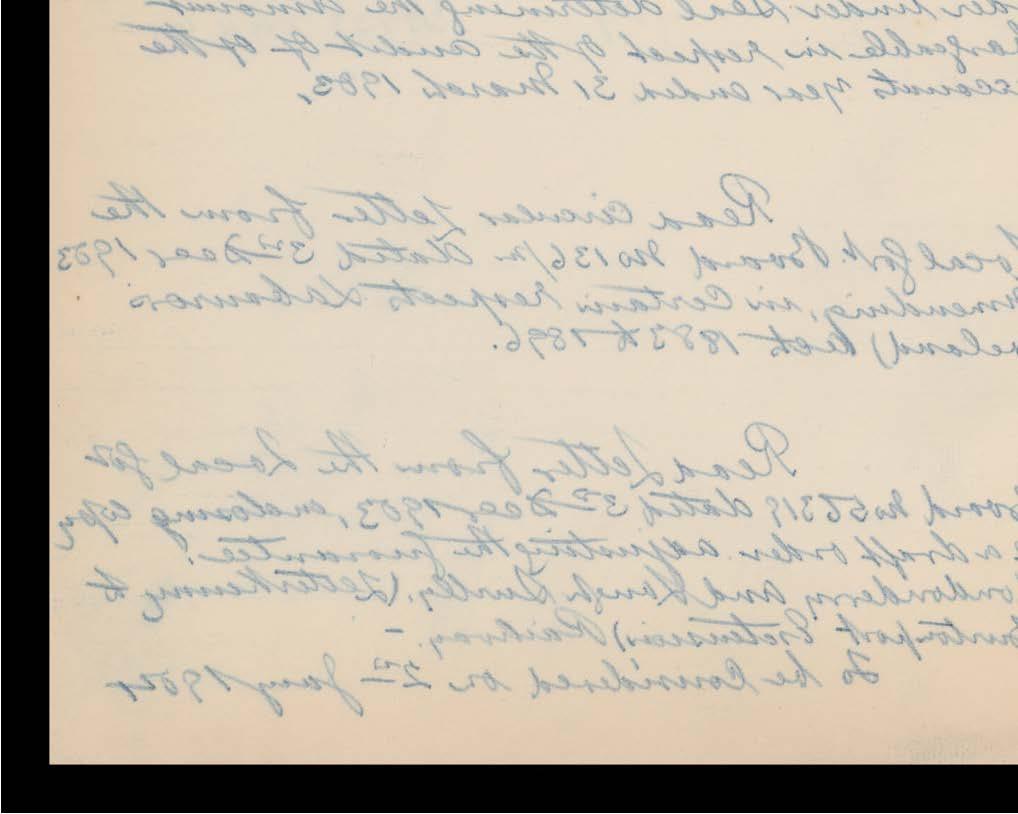 der under Seal determining the Amount
chargeable in respect of the Audit of the
Accounts year ended 31 March 1903.
Read Circular Letter from the
Local Govt Board No 136/m dated 3rd Decr 1903
amending, in Certain Respects Labourers
Ireland) Acts 1883 to 1896.
Read Letter from the Local Gov
Board No 56319 dated 3rd Dec 1903, enclosing Copy
a draft order adjusting the Guarantee.
Londonderry and Lough Swilly, (Letterkenny to
Burtonport Extension) Railway. -
To be Considered on 2nd Jany 1904